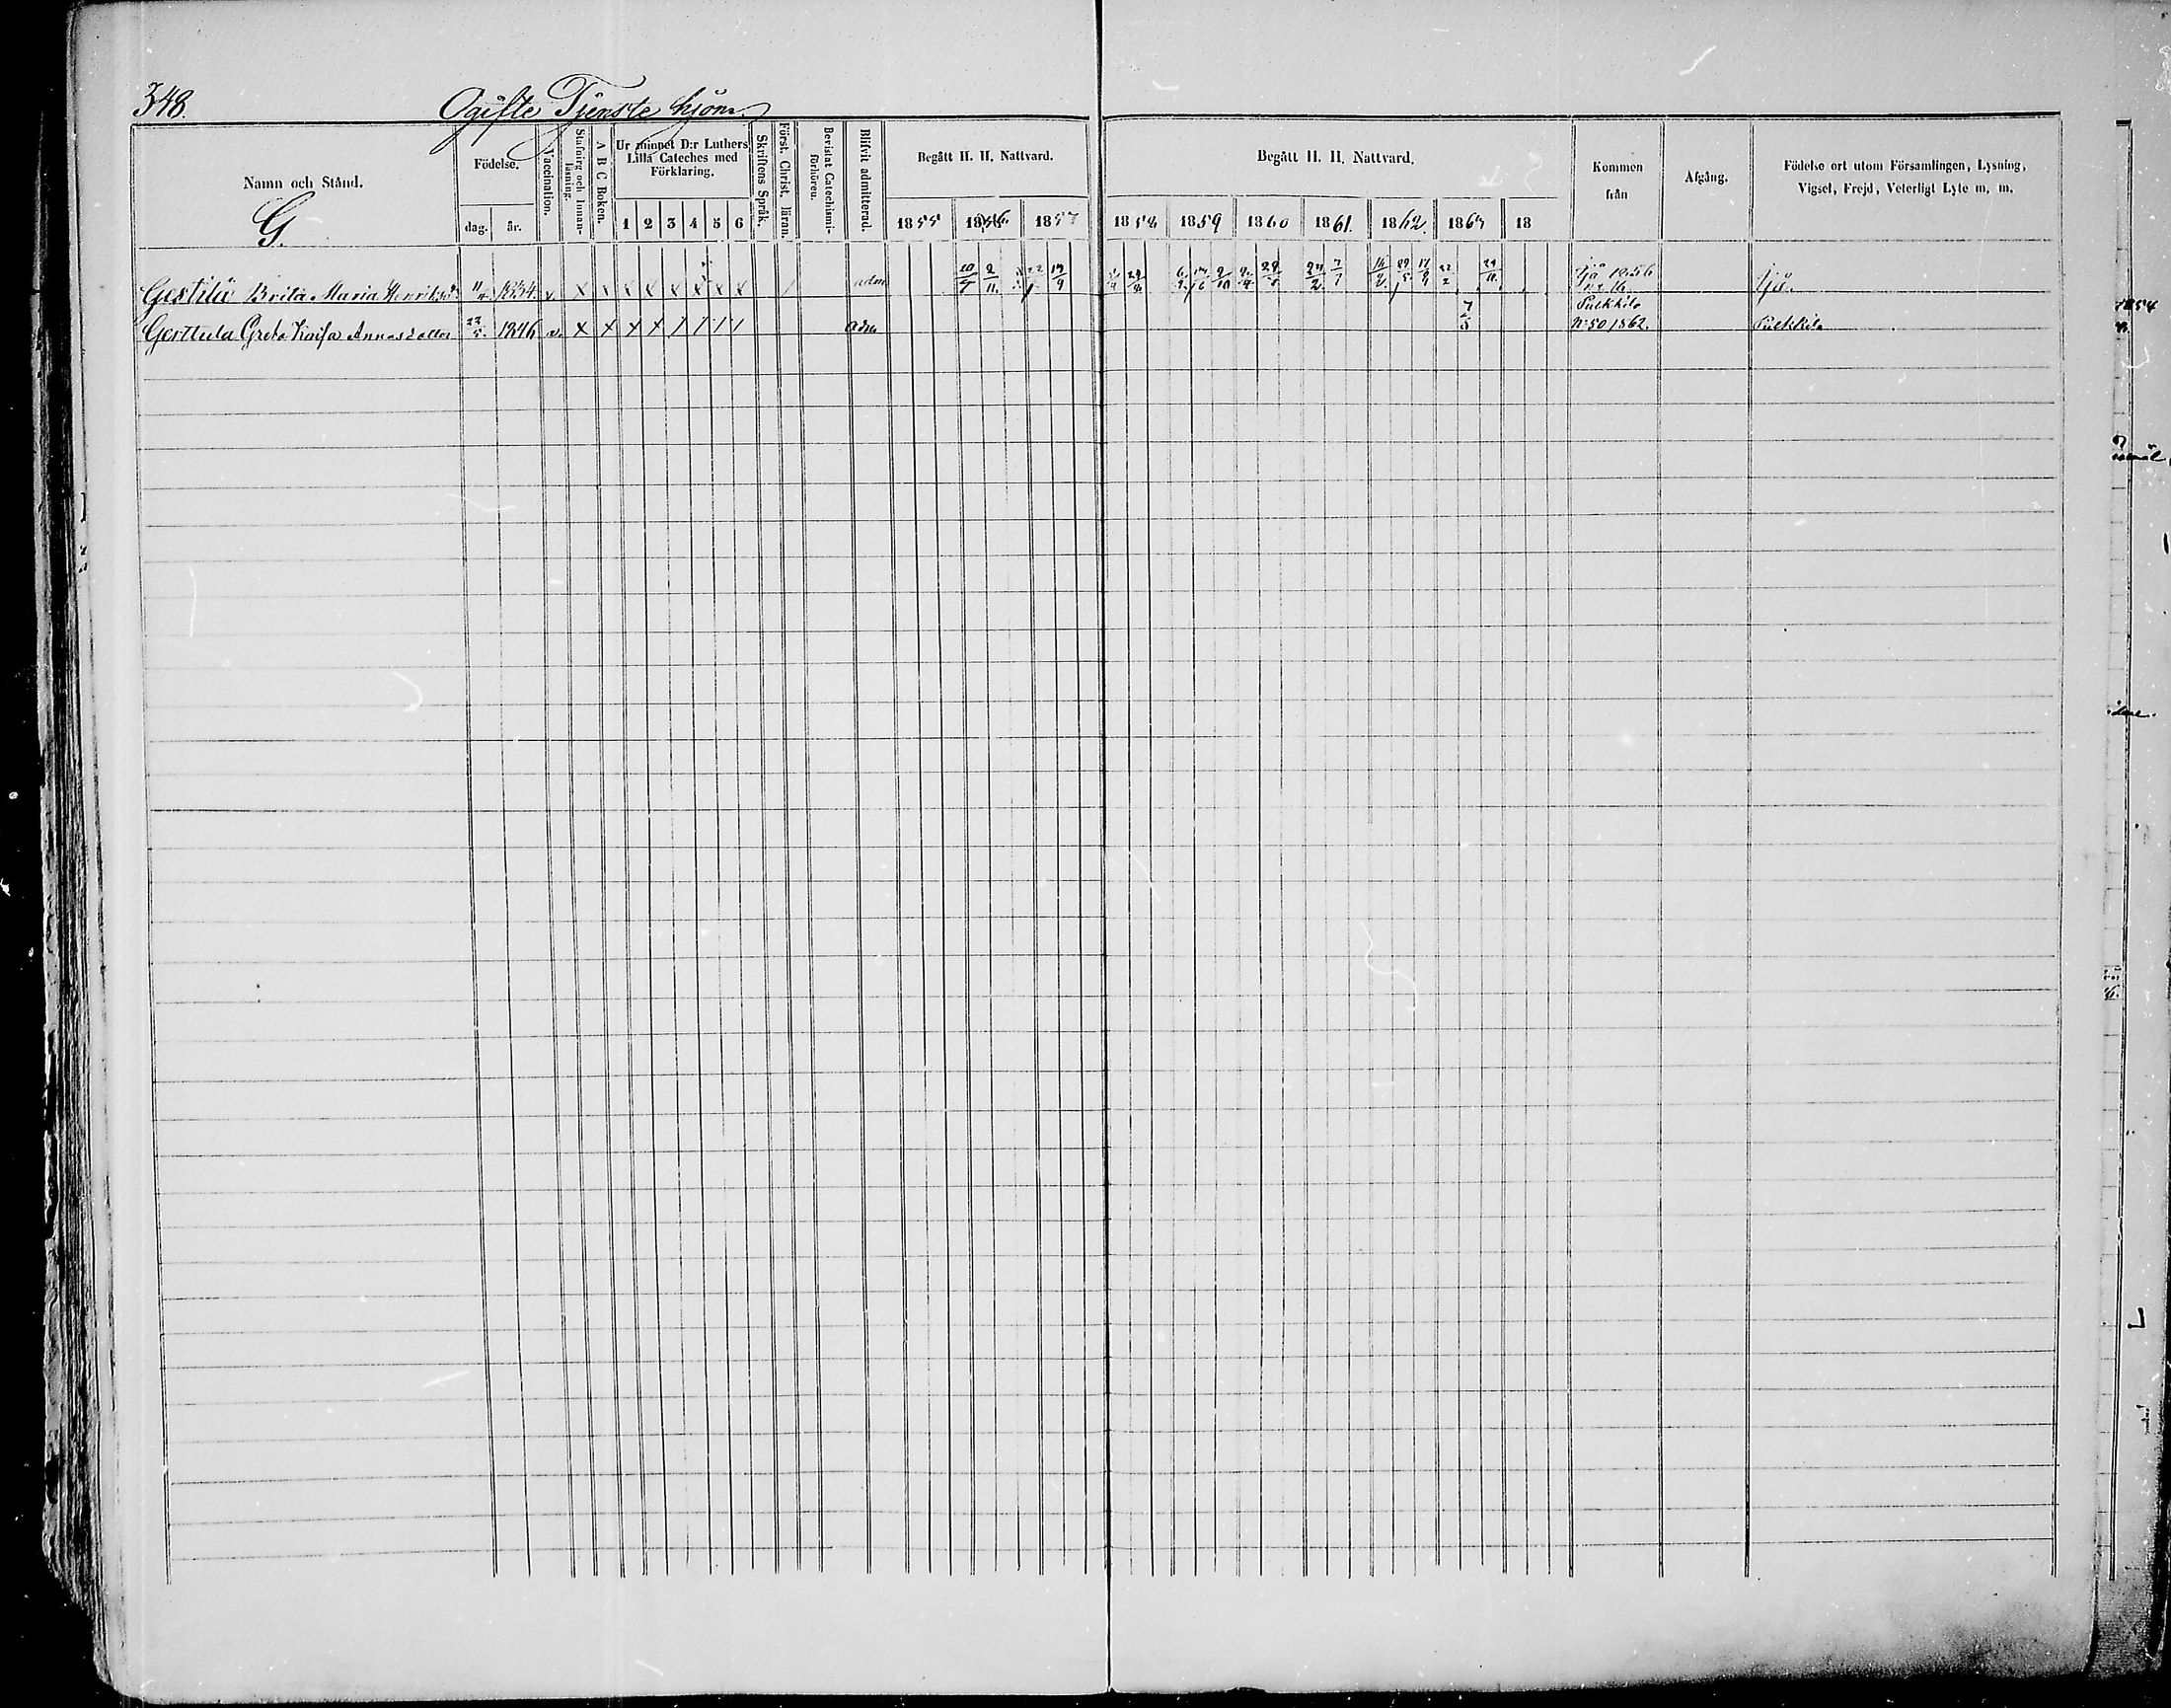 348. Ogifte Tjenste hjon.
Namn och Stånd.
G.
Födelse.
dag. år.
Vaccination.
Stafning och Innan-läsning.
A B C Boken.
Ur minnet D:r Luthers Lilla Cateches med Förklaring.
1 2 3 4 5 6
Skriftens Språk.
Förest. Christ. läran.
Bevistat Catechismi-förhören.
Blifvit admitterad.
Begått H. H. Nattvard.
1855 1856 1857
Begått H. H. Nattvard.
1858 1859 1860 1861. 1862. 1863 18
Kommen från
Afgång.
Födelse ort utom Församlingen, Lysning, Vigsel, Frejd, Veterligt Lyte m. m.
Gestilä Brita Maria 1834. v. x x x x x x x x adm 10/7 2/11 19/9 24/2 7/7 16/2 22/2 Ijå 1856 Ijå.
Gerttula Greta Kaisa Annasdotter 22/5. 1846 v. x x x x / / / / adm 7/5 Pulkkila N:50 1862. Pulkkila